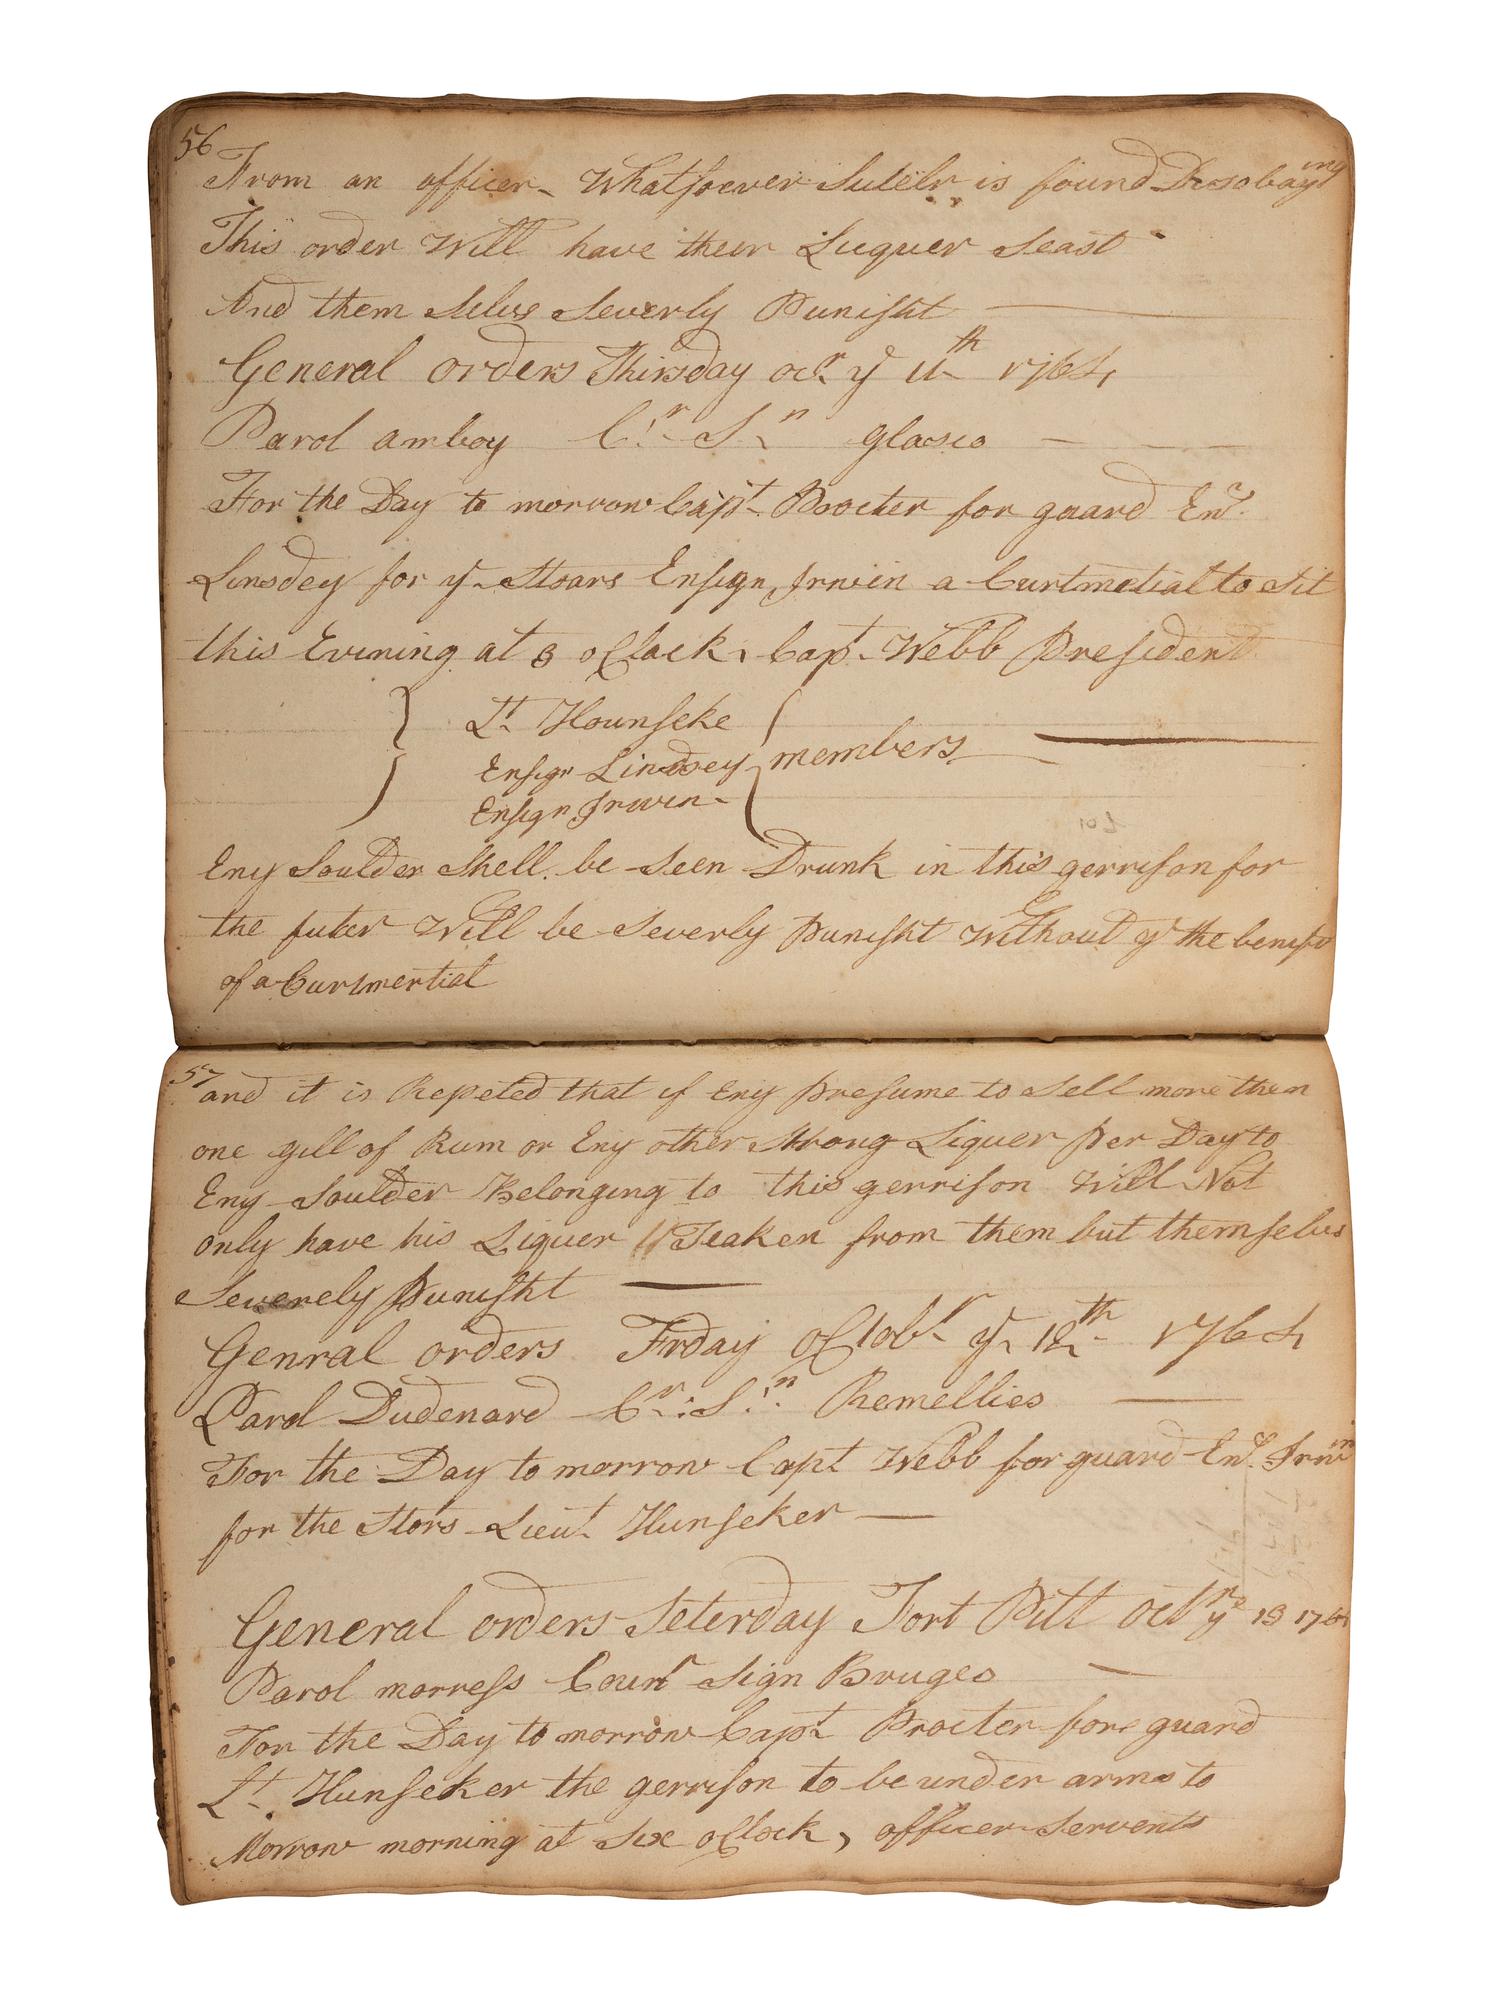 56
From an officer - Whatsoever Suteler is found Disobaying
This order Will have their Luquer Seast
And them Selvs Severly Punisht
General orders Thirsday octr ye 11th 1764
Parol amboy Cr Sn glasco
For the Day to morrow Capt Procter for guard Enr.
Linsdey for ye Stoars Ensign Irwin a Curtmetial to Sit
this Evining at 3 oClock, Capt Webb President
Lt Hounseke
Ensign Lindsey members
Ensign Irwin
Eny Soulder Shell be Seen Drunk in this gerrison for
the futer Will be Severly Punisht Without ye the benifit
of a Curtmertial
57
and it is Repeted that if Eny Presume to Sell more then
one gill of Rum or Eny other Strong Liquer Per Day to
Eny Soulder Belonging to this gerrison Will Not
only have his Liquer Teaken from them but themselvs
Severely Punisht
Genral orders Frday octobr ye 12th 1764
Parol Dudenard Cr: Sn: Remellies
For the Day to morrow Capt Webb for guard Enr. Irwin
for the Stors Lieut Hunseker
General orders Seterday Fort Pitt octbr ye 13 1764
Parol morress Countr Sign Bruges
For the Day to morrow Capt Procter for guard
Lt Hunseker the gerrison to be under arms to
Morrow morning at Six oClock, officer Servents